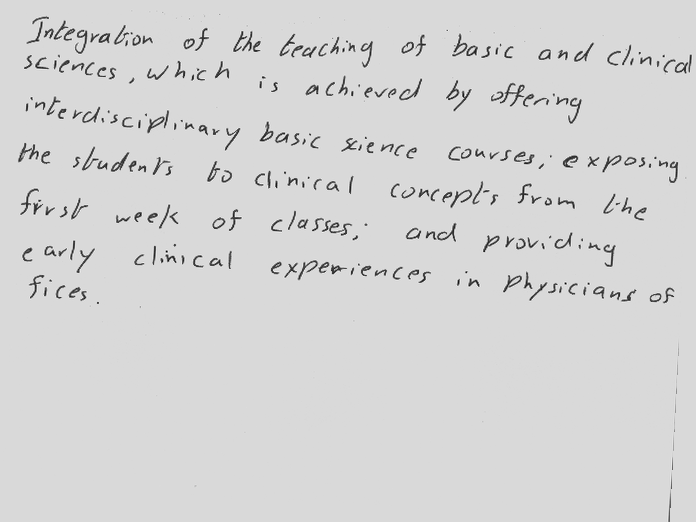 Integration of the teaching of basic and clinical
sciences, which is achieved by offering
interdisciplinary basic science courses; exposing
the students to clinical concepts from the
first week of classes; and providing
early clinical experiences in physicians of
fices.